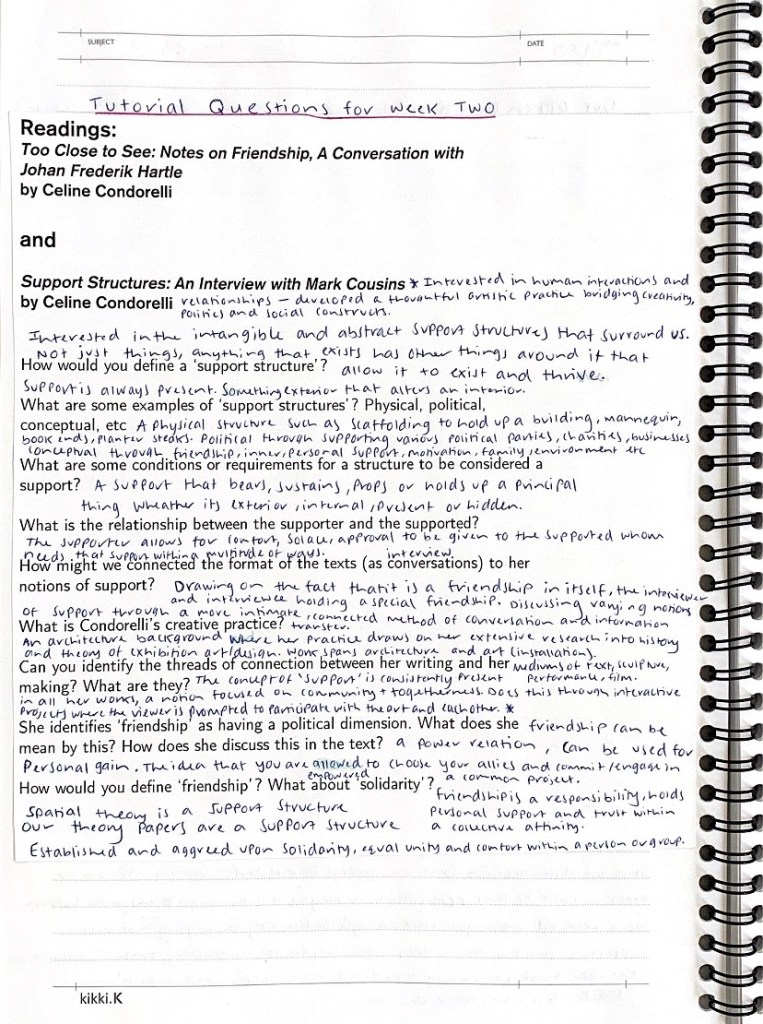 SUBJECT
DATE
Tutorial Questions for week Two
Readings:
Too Close to See: Notes on Friendship, A Conversation with
Johan Frederik Hartle
by Celine Condorelli
and
Support Structures: An Interview with Mark Cousins * Interested in human interactions and
by Celine Condorelli relationships – developed a thoughtful artistic practice bridging creativity,
politics and social constructs.
Interested in the intangible and abstract support structures that surround us.
Not just things, anything that exists has other things around it that
How would you define a 'support structure'? allow it to exist and thrive.
Support is always present. Something exterior that alters an interior.
What are some examples of 'support structures'? Physical, political,
conceptual, etc A physical structure such as scaffolding to hold up a building, mannequin,
book ends, planter steaks. Political through supporting various political parties, charities, businesses
conceptual through friendship, inner, personal support, motivation, family, environment etc
What are some conditions or requirements for a structure to be considered a
support? A support that bears, sustains, props or holds up a principal
thing wheather its exterior, internal, present or hidden.
What is the relationship between the supporter and the supported?
The supporter allows for comfort, solace, approval to be given to the supported whom
needs that support within a multitude of ways.
interview
How might we connected the format of the texts (as conversations) to her
notions of support? Drawing on the fact that it is a friendship in itself, the interviewer
and interviewee holding a special friendship. Discussing varying notions
of support through a more intimate, connected method of conversation and information
What is Condorelli's creative practice? transfer.
An architecture background where her practice draws on her extensive research into history
and theory of exhibition art/design. Work spans architecture and art (installations).
Can you identify the threads of connection between her writing and her mediums of text, sculpture,
making? What are they? The concept of 'support' is consistently present performance, film.
in all her works, a notion focused on community + togetherness. Does this through interactive
projects where the viewer is prompted to participate with the art and eachother. *
She identifies 'friendship' as having a political dimension. What does she friendship can be
mean by this? How does she discuss this in the text? a power relation, can be used for
Personal gain. The idea that you are allowed to choose your allies and commit/engage in
empowered
How would you define 'friendship'? What about 'solidarity'? a common project.
friendship is a responsibility, holds
Spatial theory is a support structure personal support and trust within
our theory papers are a support structure a collective affinity.
Established and aggreed upon solidarity, equal unity and comfort within a person or group.
kikki.K